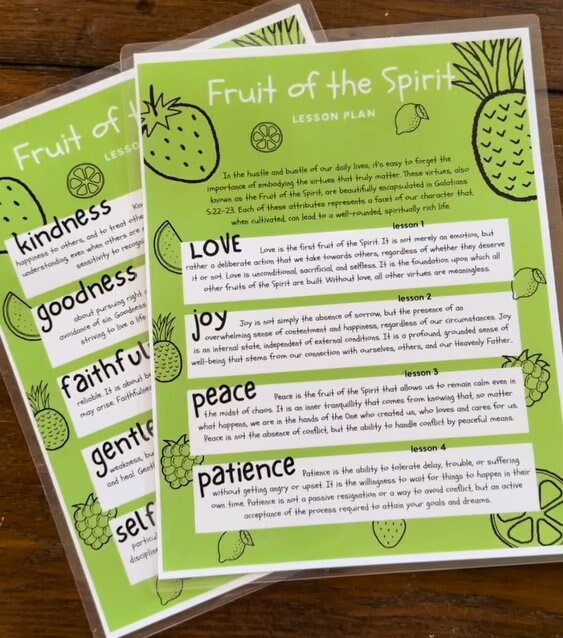 Fruit of the Spirit
LESSON PLAN
In the hustle and bustle of our daily lives, it's easy to forget the
importance of embodying the virtues that truly matter. These virtues, also
known as the Fruit of the Spirit, are beautifully encapsulated in Galatians
5:22-23. Each of these attributes represents a facet of our character that,
when cultivated, can lead to a well-rounded, spiritually rich life.
lesson 1
LOVE Love is the first fruit of the Spirit. It is not merely an emotion, but
rather a deliberate action that we take towards others, regardless of whether they deserve
it or not. Love is unconditional, sacrificial, and selfless. It is the foundation upon which all
other fruits of the Spirit are built. Without love, all other virtues are meaningless.
lesson 2
joy Joy is not simply the absence of sorrow, but the presence of an
overwhelming sense of contentment and happiness, regardless of our circumstances. Joy
is an internal state, independent of external conditions. It is a profound, grounded sense of
well-being that stems from our connection with ourselves, others, and our Heavenly Father.
lesson 3
peace Peace is the fruit of the Spirit that allows us to remain calm even in
the midst of chaos. It is an inner tranquility that comes from knowing that, no matter
what happens, we are in the hands of the One who created us, who loves and cares for us.
Peace is not the absence of conflict, but the ability to handle conflict by peaceful means.
lesson 4
patience Patience is the ability to tolerate delay, trouble, or suffering
without getting angry or upset. It is the willingness to wait for things to happen in their
own time. Patience is not a passive resignation or a way to avoid conflict, but an active
acceptance of the process required to attain your goals and dreams.
Fruit of
LESSO
kindness
happiness to others, and to treat othe
understanding even when others are
sensitivity to recog
goodness
about pursuing right
avoidance of sin. Goodness
striving to live a life
faithful
reliable. It is about
may arise. Faithfulness
gentle
weakness, bu
and heal. Gentl
self
partic
disciplin